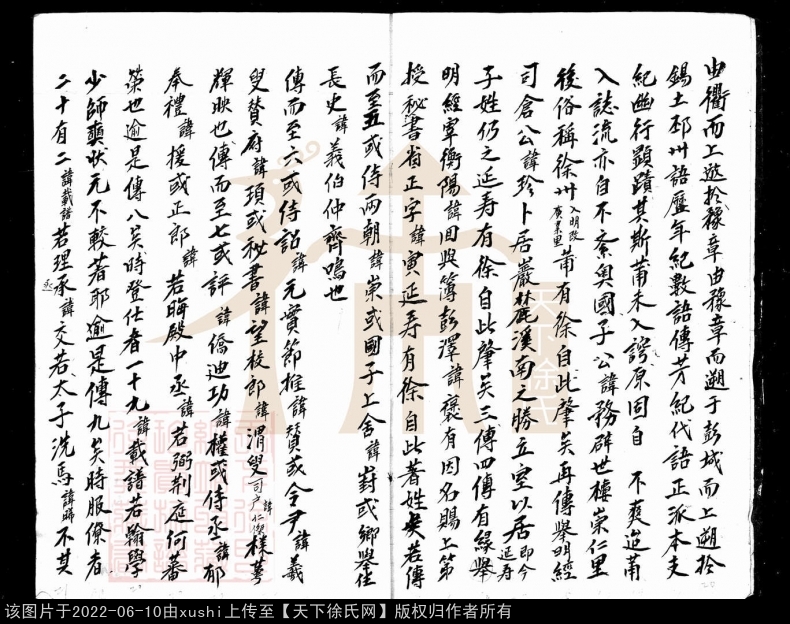 由衢而上遡於豫章由豫章而朔于彭城而上朔於
錫土邳州語歷年紀數語傳芳紀代語正派本支
紀幽行顯蹟其斯莆未入誇原固自　不爽迨莆
入誌流亦自不紊奧國子公諱務辟世樓崇仁里
後俗稱徐州入明改廣業里莆有徐自此肇矣再傳舉明經
司倉公諱珍卜居巖麓溪南之勝立室以居即今延寿
子姓仍之延寿有徐自此肇矣三傳四傳有緣舉
明經宰衡陽諱田與簿彭澤諱褒有因名賜上第
授秘書省正字諱寅延寿有徐自此著姓矣若傳
而至五或侍兩朝諱崇或國子上舍諱封或鄉舉任
長史諱義伯仲齊鳴也
傳而至六或侍詔諱元實節推諱贊或令尹諱羲
叟贊府諱頊或秘書諱望校郎諱渭叟司户諱仁傑棣萼
輝映也傳而至七或評諱僑迪功諱權或侍丞諱郁
奉禮諱援或正郎諱若晦殿中丞諱若弼荆庭何蕃
榮也逾是傳八矣時登仕者一十九諱載譜若翰學
少師奭狀元不較著耶逾是傳九矣時服僚者
二十有二諱載譜若理丞丞諱交若太子洗馬諱師不其
天下徐氏
该图片于2022-06-10由xushi上传至【天下徐氏网】版权归作者所有